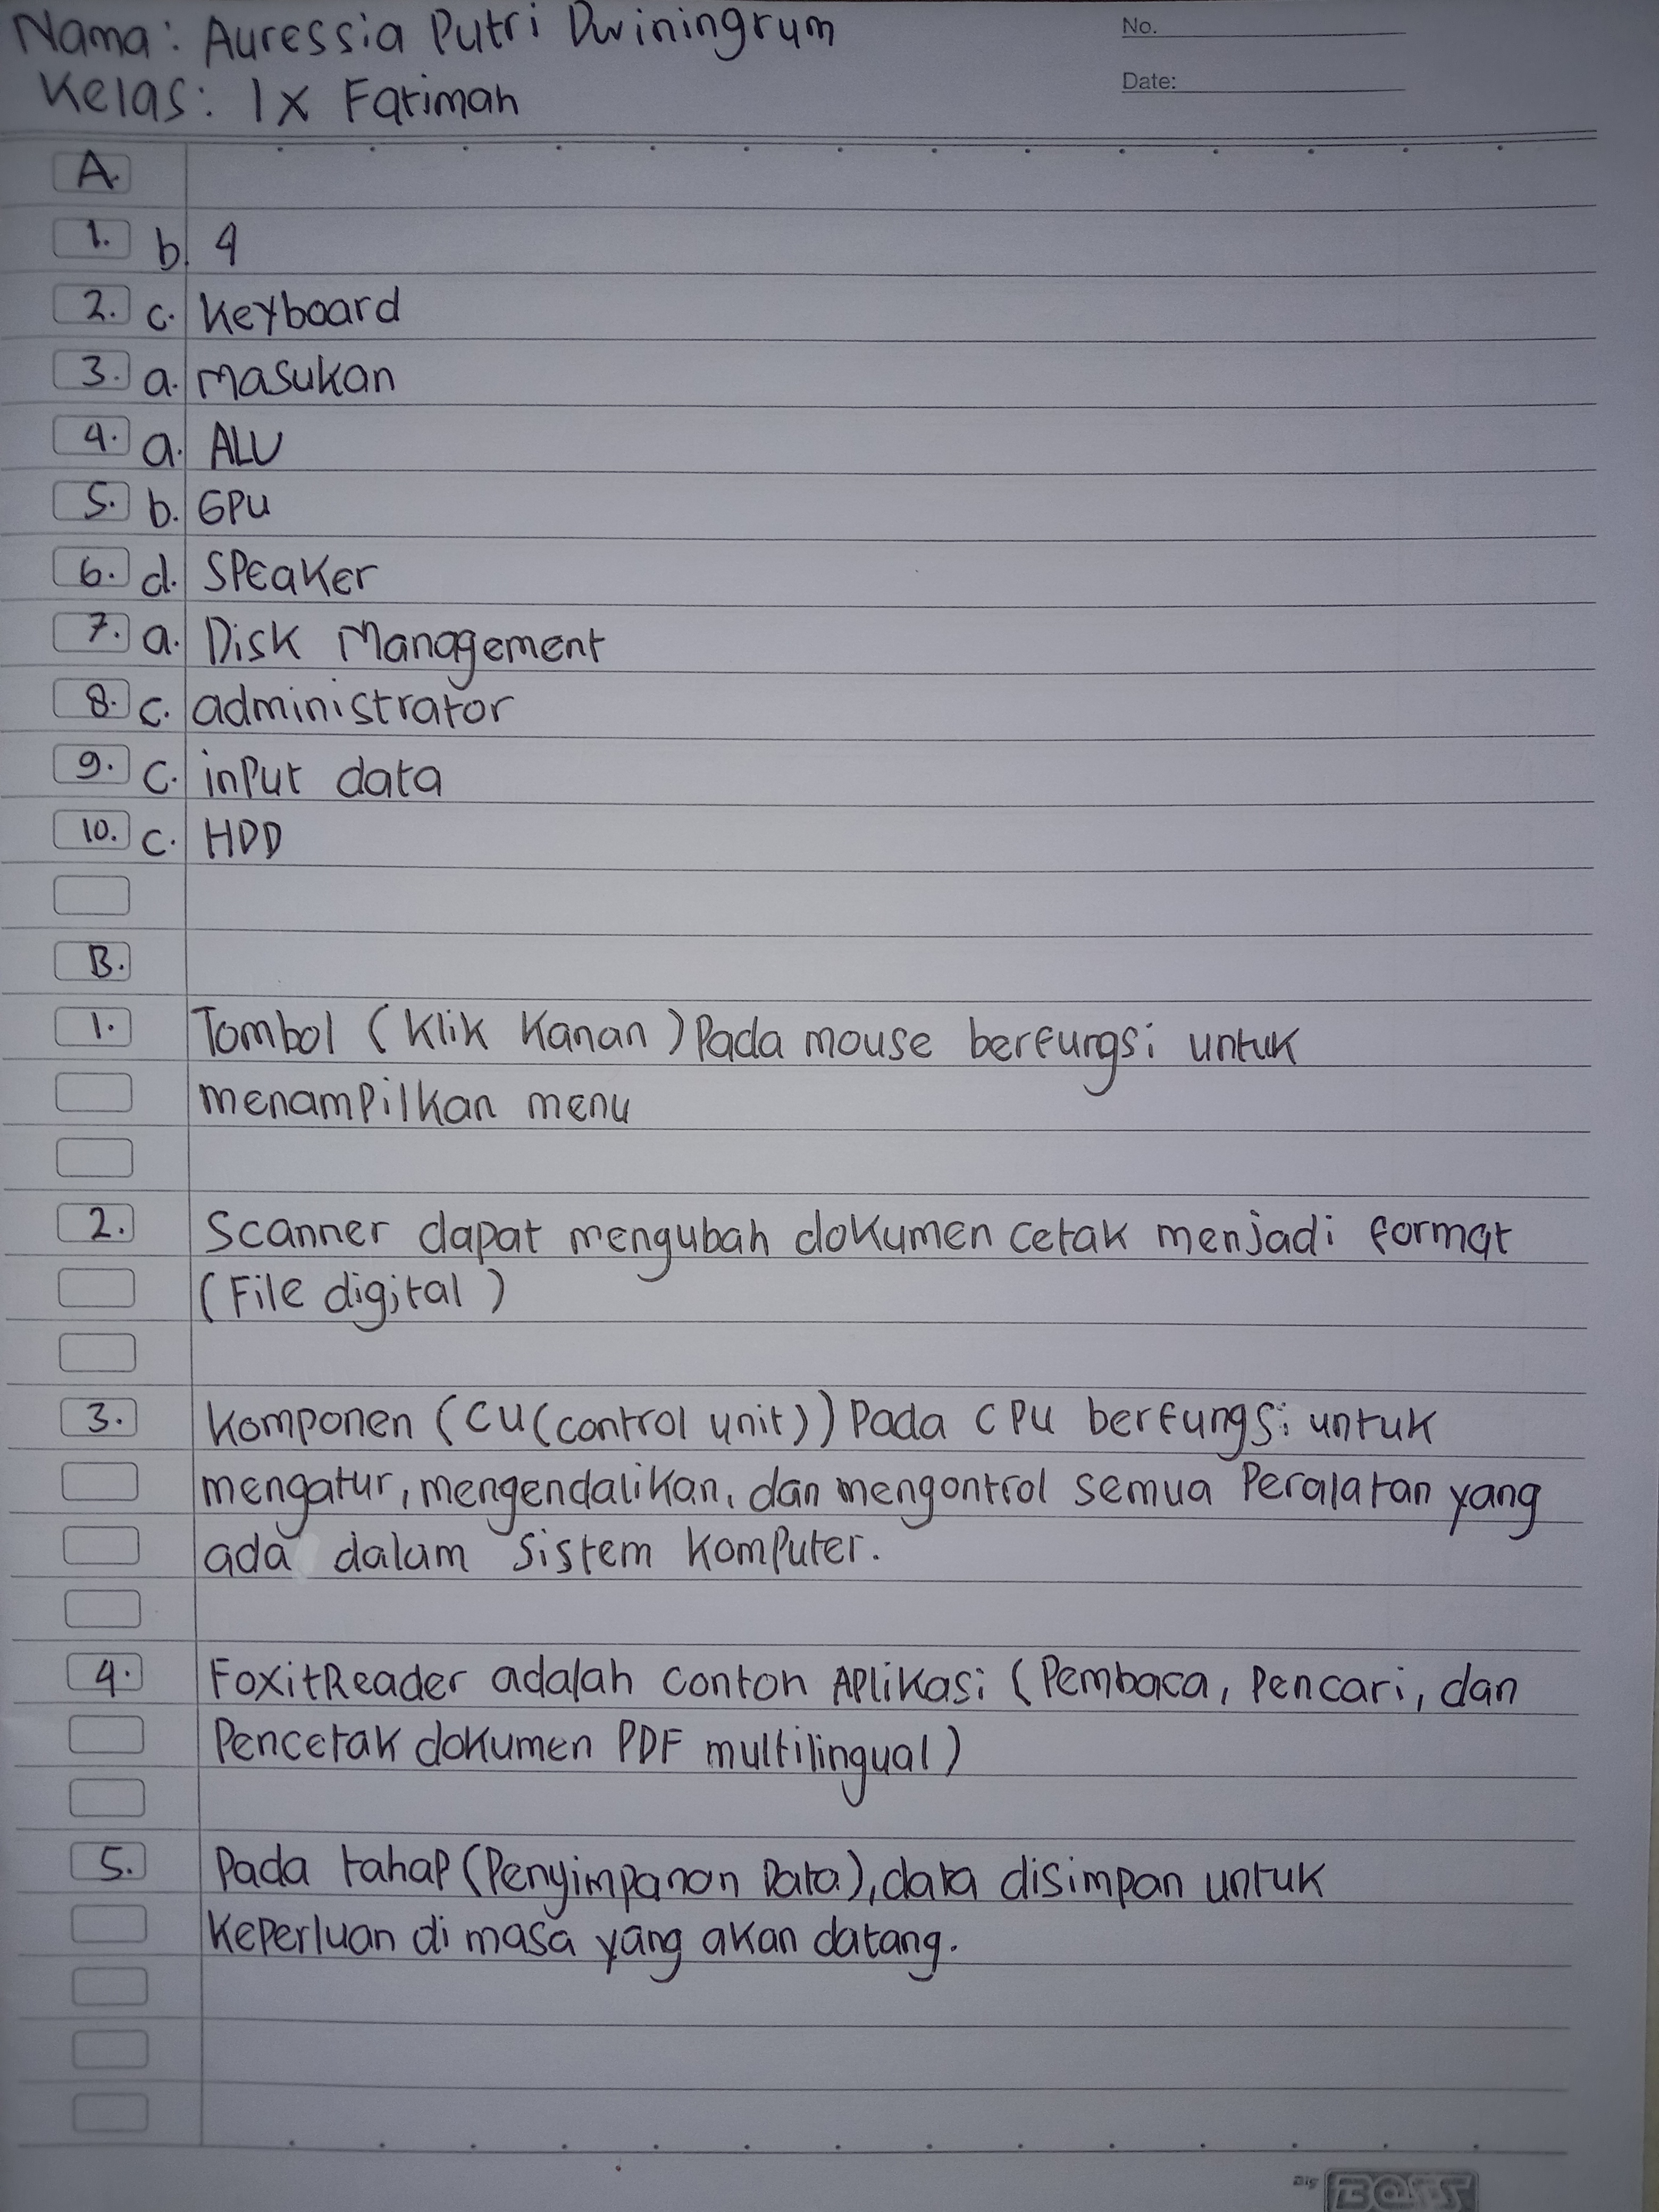 Nama: Auressia Putri Dwiningrum
Kelas: IX Fatimah
No.
Date:
A.
1. b. 4
2. c. Keyboard
3. a. masukan
4. a. ALU
5. b. GPU
6. d. Speaker
7. a. Disk Management
8. c. administrator
9. c. input data
10. c. HDD
B.
1. Tombol (Klik Kanan) Pada mouse berfungsi untuk
menampilkan menu
2. Scanner dapat mengubah dokumen cetak menjadi format
(File digital)
3. Komponen (CU(control unit)) Pada CPU berfungsi untuk
mengatur, mengendalikan, dan mengontrol semua Peralatan yang
ada dalam sistem komputer.
4. FoxitReader adalah contoh Aplikasi (Pembaca, Pencari, dan
Pencetak dokumen PDF multilingual)
5. Pada tahap (Penyimpanan Data), data disimpan untuk
Keperluan di masa yang akan datang.
Big BOSS